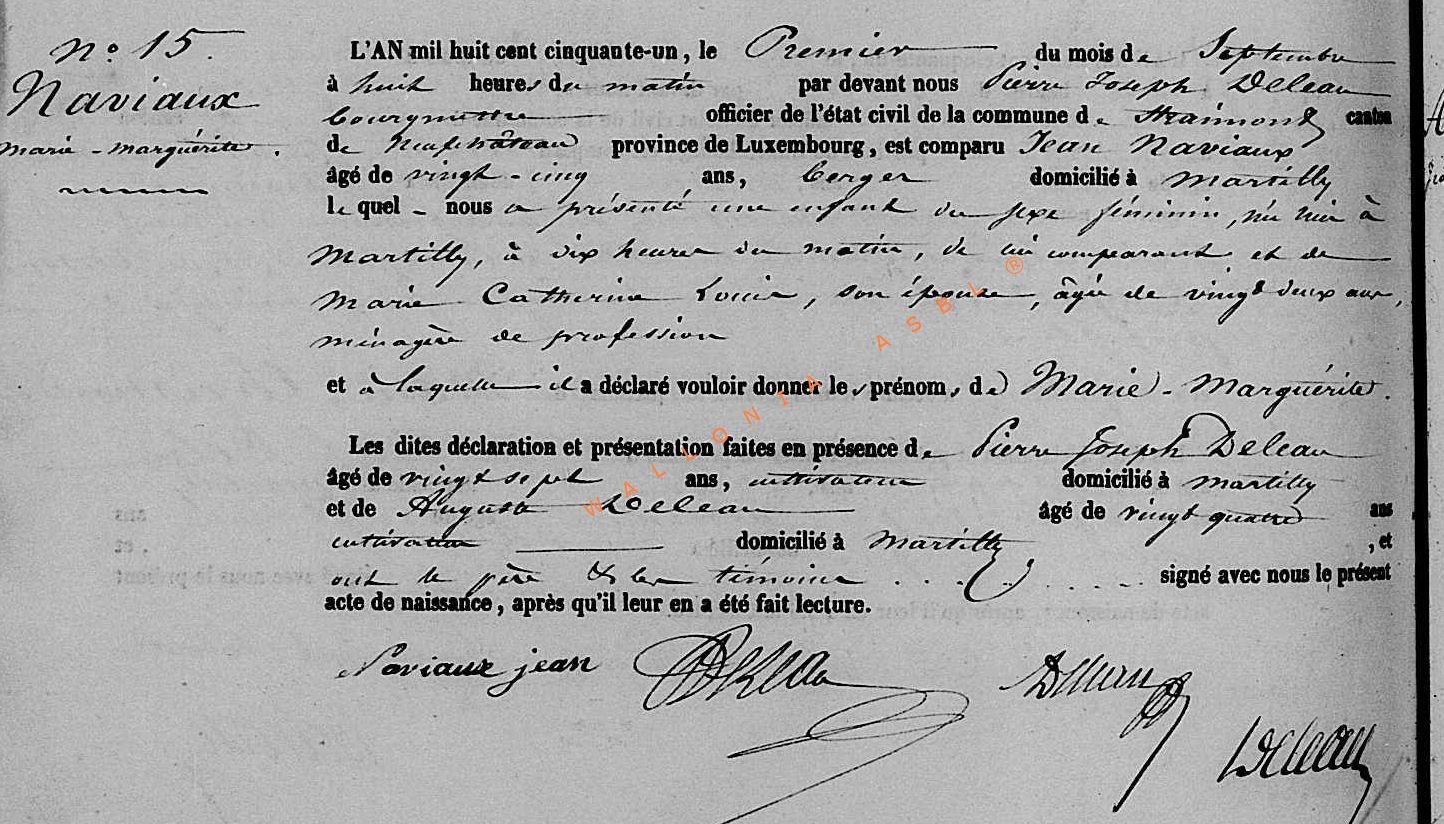 n° 15.
Naviaux
marie-marguérite.
L'AN mil huit cent cinquante-un, le Premier du mois de Septembre
à huit heures du matin par devant nous Pierre Joseph Deleau
bourgmestre officier de l'état civil de la commune de Straimont, canton
de Neufchâteau province de Luxembourg, est comparu Jean Naviaux
âgé de vingt-cinq ans, berger domicilié à Martilly
lequel nous a présenté une enfant du sexe féminin, née hier à
Martilly, à dix heures du matin, de lui comparant et de
Marie Catherine Louis, son épouse, âgée de vingt deux ans,
ménagère de profession
et à laquelle il a déclaré vouloir donner les prénoms de Marie-Marguérite.
Les dites déclaration et présentation faites en présence de Pierre Joseph Deleau
âgé de vingt sept ans, cultivateur domicilié à Martilly
et de Auguste Deleau âgé de vingt quatre ans
cultivateur domicilié à Martilly, et
ont le père & les témoins signé avec nous le présent
acte de naissance, après qu'il leur en a été fait lecture.
Naviaux jean Deleau
Deleau
WALLONIA ASBL ®